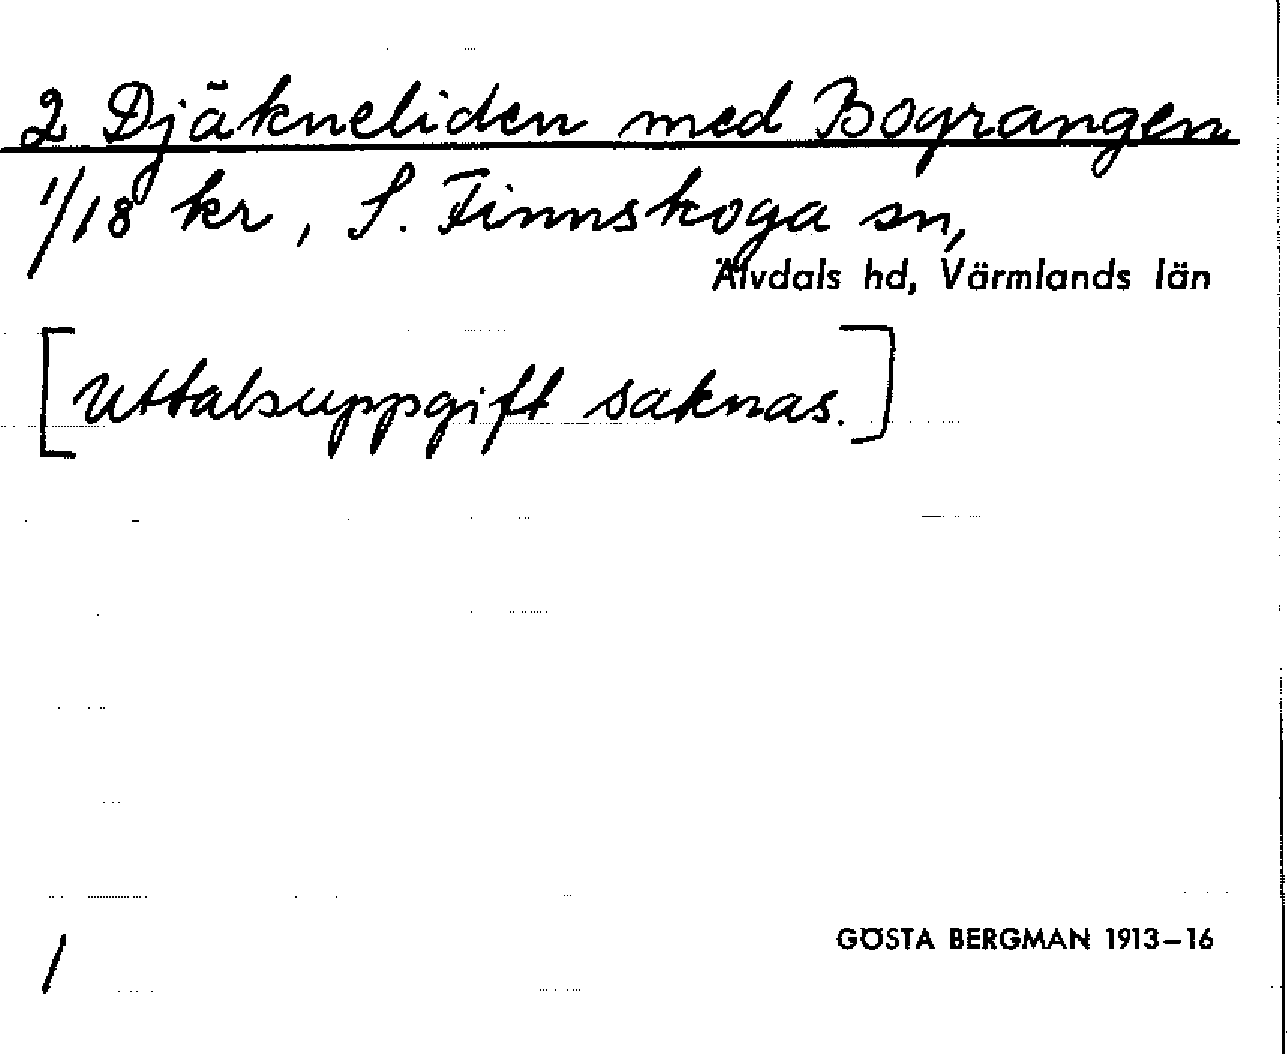 2 Djäkneliden med Bograngen
1/18 kr, S. Finnskoga sn,
Älvdals hd, Värmlands län
[Uttalsuppgift saknas.]
GÖSTA BERGMAN 1913-16
/